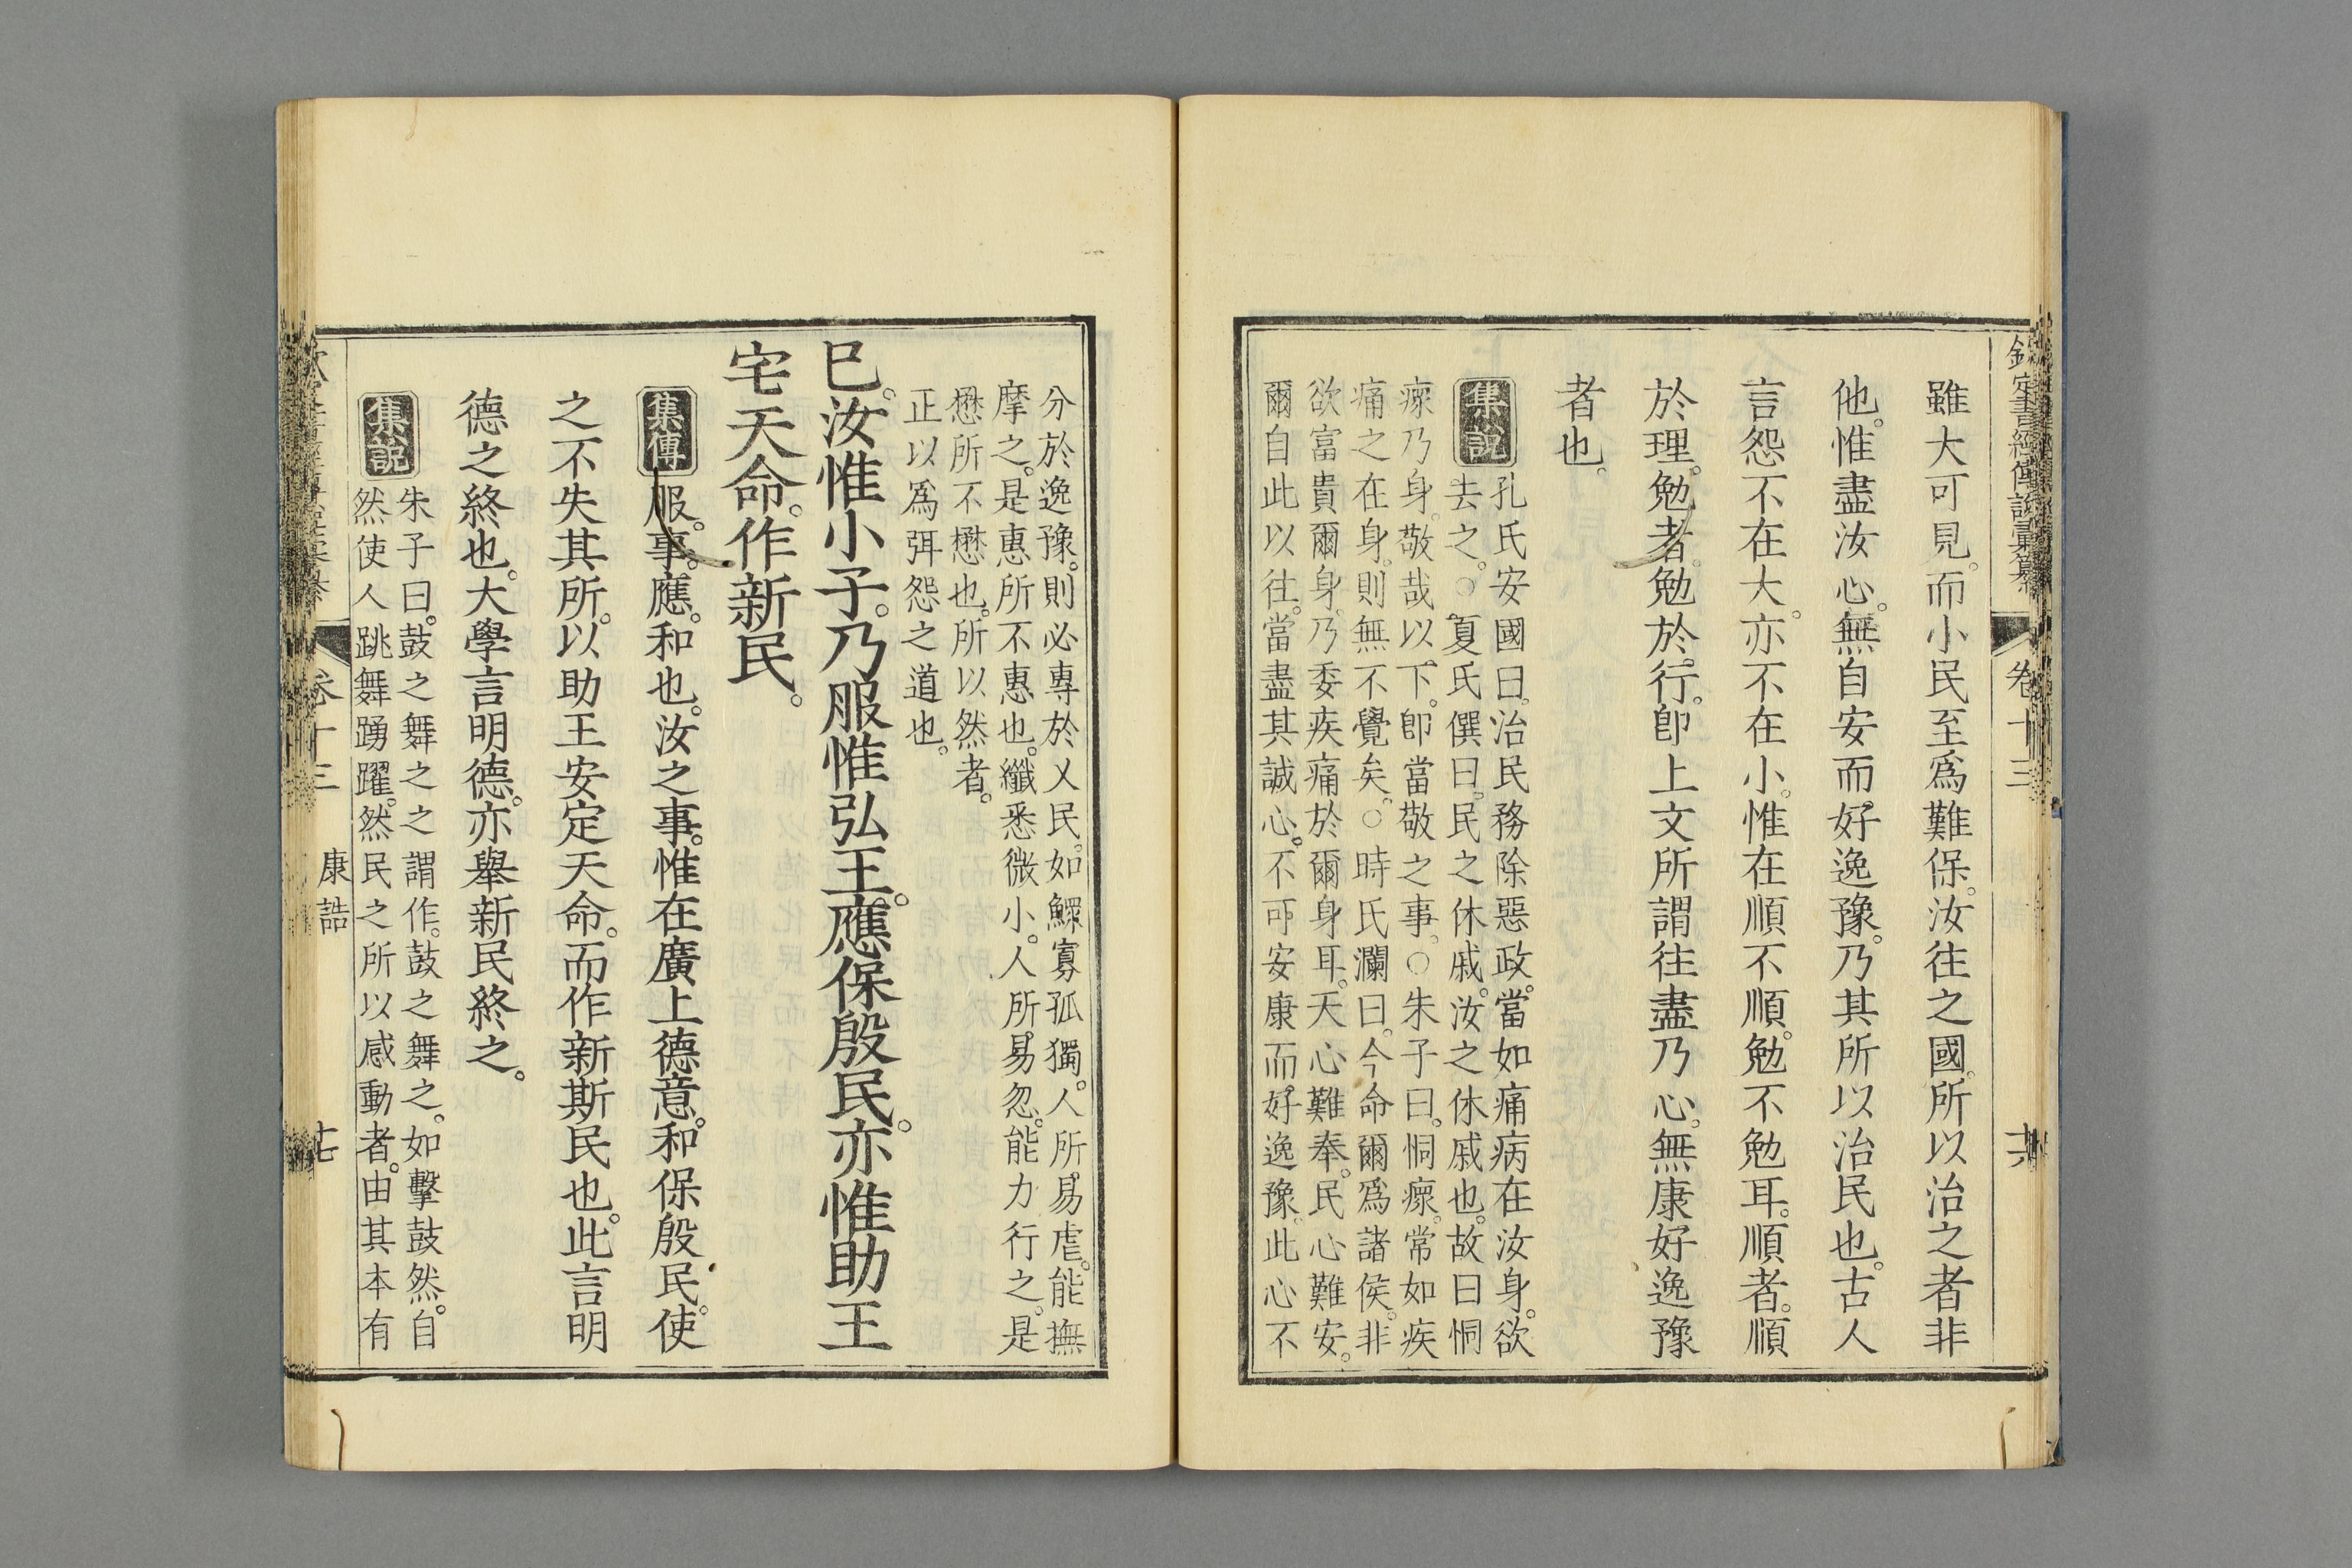 欽定書經傳說彙纂 卷十三 十六
雖大可見。而小民至為難保。汝往之國。所以治之者非
他。惟盡汝心。無自安而好逸豫。乃其所以治民也。古人
言怨不在大。亦不在小。惟在順不順。勉不勉耳。順者。順
於理。勉者。勉於行。即上文所謂往盡乃心。無康好逸豫
者也。
集說 孔氏安國曰。治民務除惡政。當如痛病在汝身。欲
去之。○夏氏僎曰。民之休戚。汝之休戚也。故曰恫
瘝乃身。敬哉以下。即當敬之事。○朱子曰。恫瘝。常如疾
痛之在身。則無不覺矣。○時氏瀾曰。今命爾為諸侯。非
欲富貴爾身。乃委疾痛於爾身耳。天心難奉。民心難安。
爾自此以往。當盡其誠心。不可安康而好逸豫。此心不
分於逸豫。則必專於乂民。如鰥寡孤獨。人所易虐。能撫
摩之。是惠所不惠也。纖悉微小。人所易忽。能力行之。是
懋所不懋也。所以然者。
正以為弭怨之道也。
已。汝惟小子。乃服惟弘王。應保殷民。亦惟助王
宅天命。作新民。
集傳 服。事。應。和也。汝之事。惟在廣上德意。和保殷民。使
之不失其所。以助王安定天命。而作新斯民也。此言明
德之終也。大學言明德。亦舉新民終之。
集說 朱子曰。鼓之舞之之謂作。鼓之舞之。如擊鼓然。自
然使人跳舞踴躍。然民之所以感動者。由其本有
卷十三 康誥 十七